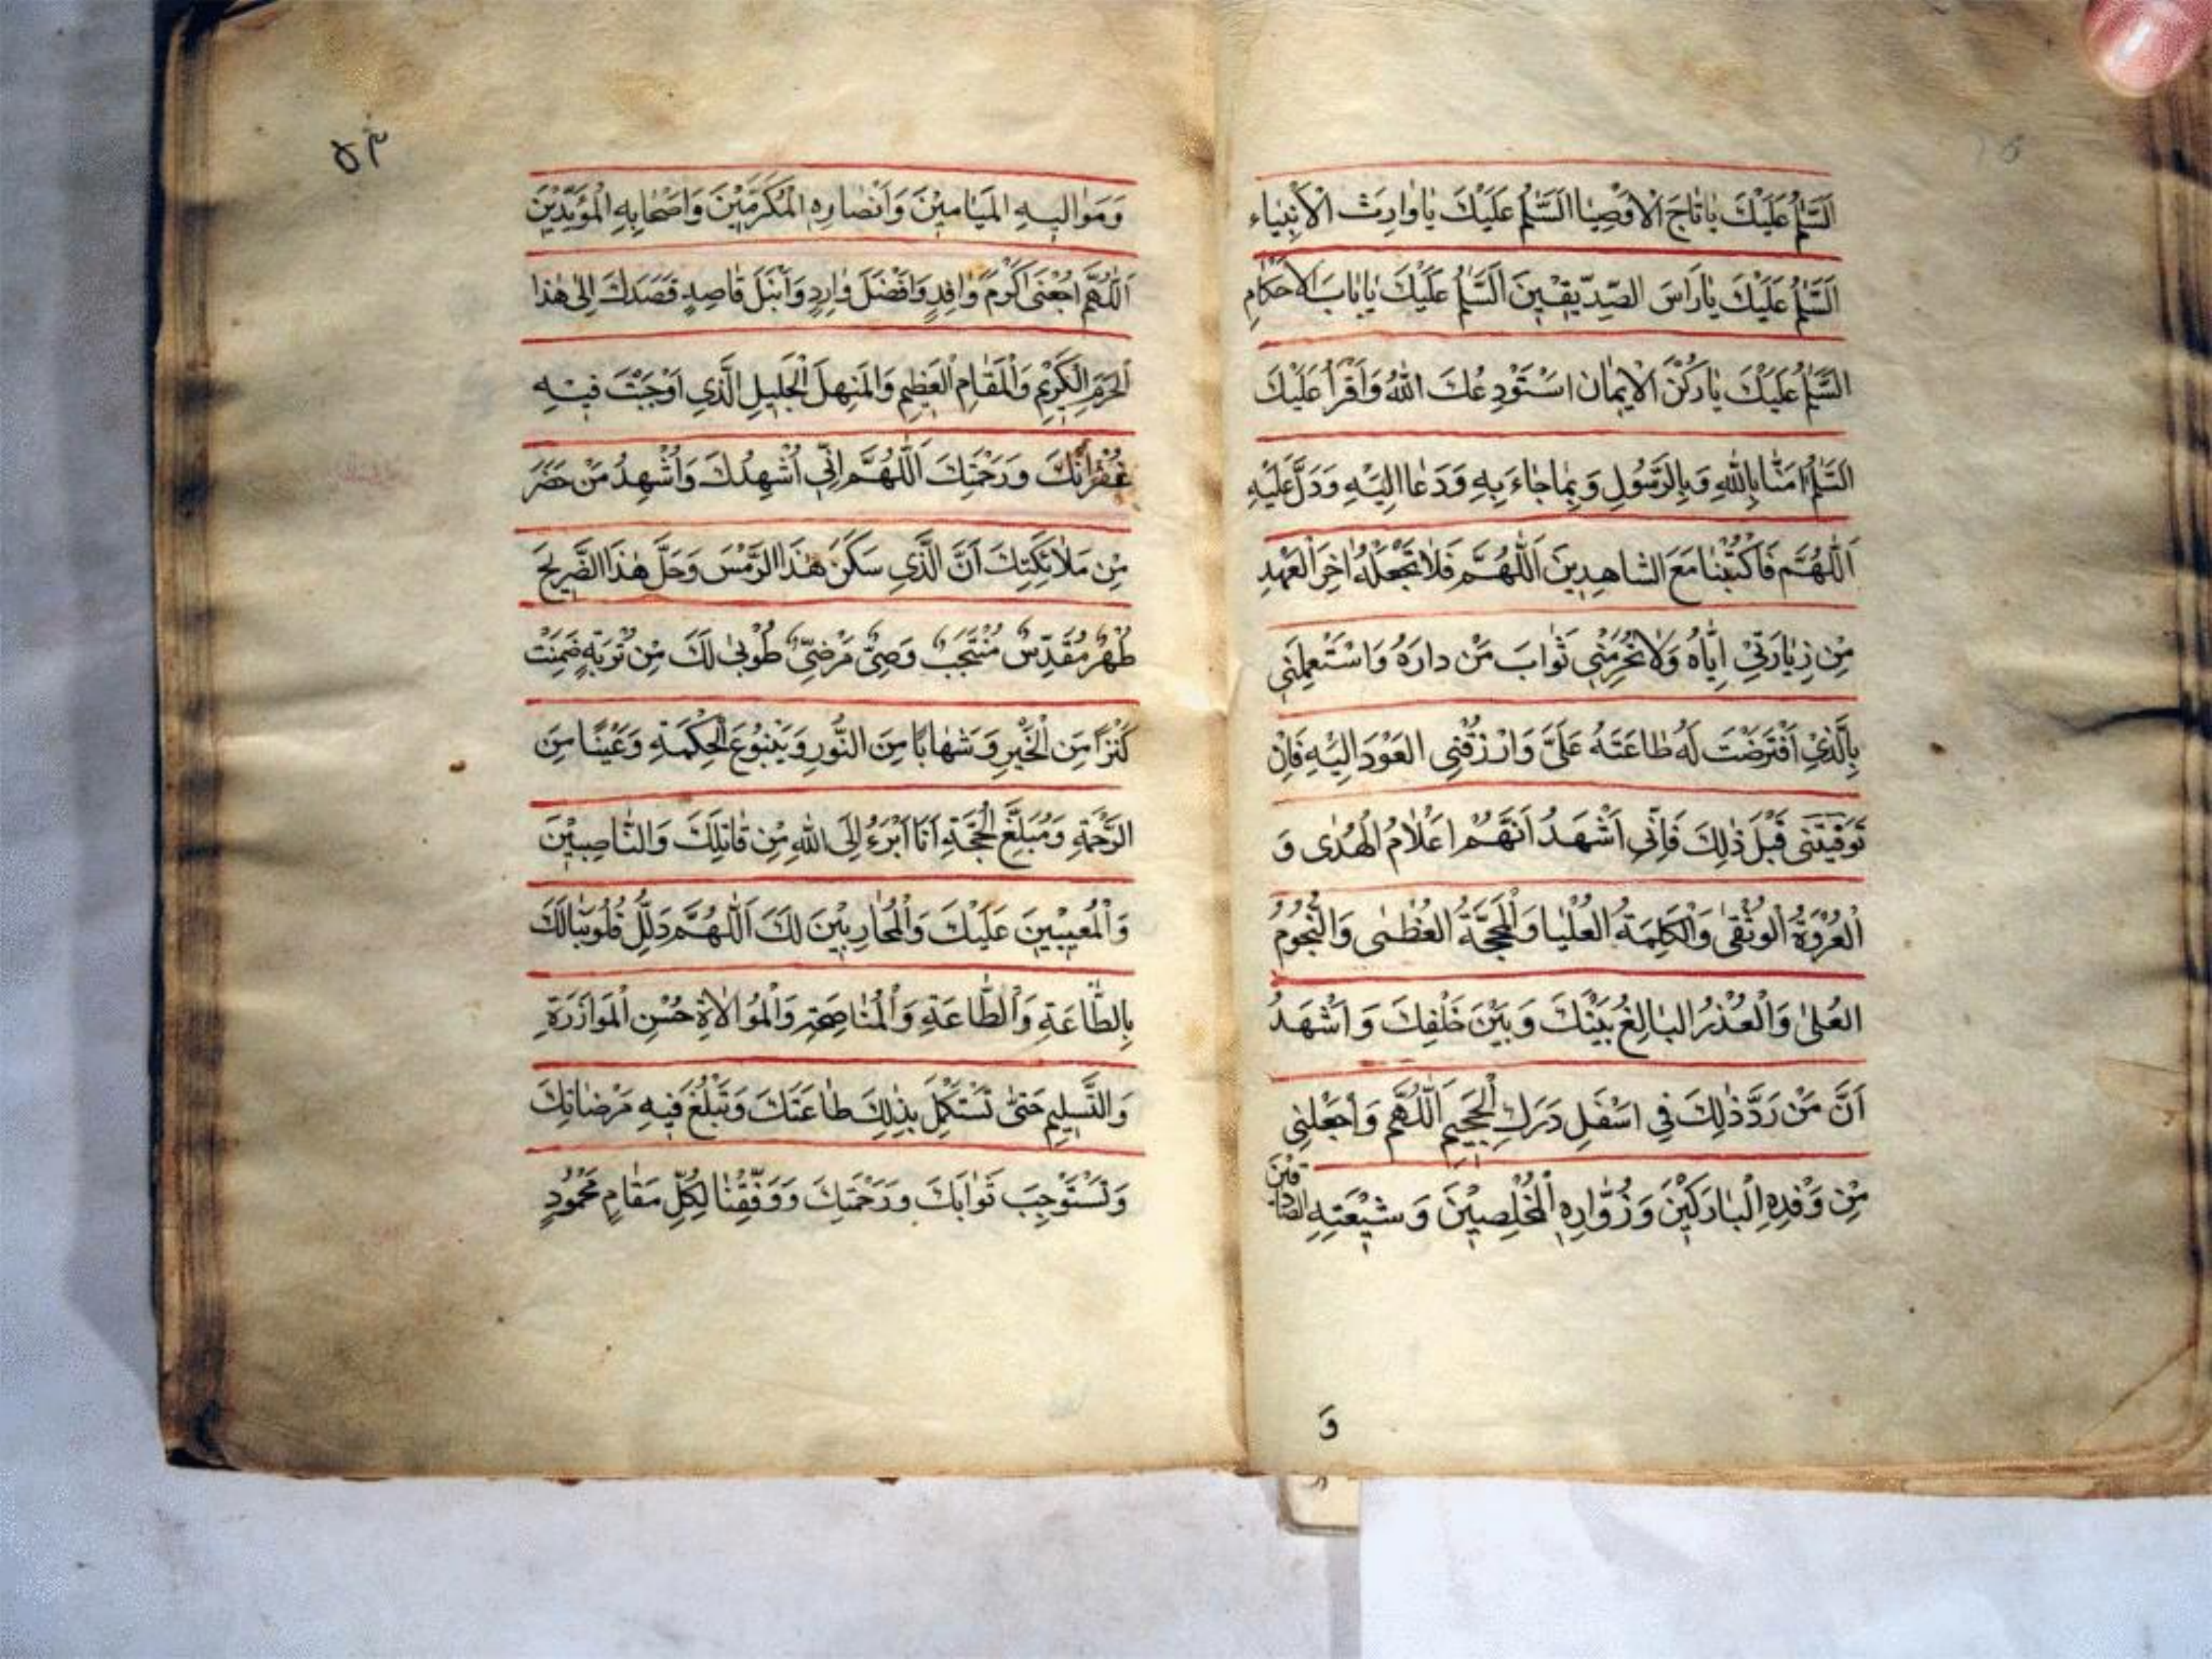 اَلسَّلٰمُ عَلَيْكَ يَا تَاجَ الْاَوْصِيَا اَلسَّلٰمُ عَلَيْكَ يَا وَارِثَ الْاَنْبِيَاء
اَلسَّلٰمُ عَلَيْكَ يَا رَاسَ الصِّدِّيقِينَ اَلسَّلٰمُ عَلَيْكَ يَا بَابَ الْاَحْكَامِ
السَّلٰمُ عَلَيْكَ يَا رُكْنَ الْاِيمَانِ اسْتَوْدِعُكَ اللهُ وَاَقْرَاُ عَلَيْكَ
السَّلٰمُ اٰمَنَّا بِاللهِ وَبِالرَّسُولِ وَبِمَا جَاءَ بِهِ وَدَعَا اِلَيْهِ وَدَلَّ عَلَيْهِ
اَللّٰهُمَّ فَاكْتُبْنَا مَعَ الشَّاهِدِينَ اَللّٰهُمَّ فَلَا تَجْعَلْهُ اٰخِرَ الْعَهْدِ
مِنْ زِيَارَتِي اِيَّاهُ وَلَا تَحْرِمْنِي ثَوَابَ مَنْ دَارَهُ وَاسْتَعْمِلْنِي
بِالَّذِي افْتَرَضْتَ لَهُ طَاعَتَهُ عَلَيَّ وَارْزُقْنِي الْعَوْدَ اِلَيْهِ فَاِنْ
تَوَفَّيْتَنِي قَبْلَ ذٰلِكَ فَاِنِّي اَشْهَدُ اَنَّهُمْ اَعْلَامُ الْهُدٰى وَ
الْعُرْوَةُ الْوُثْقٰى وَالْكَلِمَةُ الْعُلْيَا وَالْحُجَّةُ الْعُظْمٰى وَالنُّجُومُ
الْعُلٰى وَالْعُذْرُ الْبَالِغُ بَيْنَكَ وَبَيْنَ خَلْقِكَ وَاَشْهَدُ
اَنَّ مَنْ رَدَّ ذٰلِكَ فِي اَسْفَلِ دَرَكِ الْجَحِيمِ اَللّٰهُمَّ وَاجْعَلْنِي
مِنْ وَفْدِهِ الْبَارَكِينَ وَزُوَّارِهِ الْمُخْلِصِينَ وَشِيعَتِهِ الصَّادِقِينَ
وَ
٥٣
وَمَوَالِيهِ الْمَيَامِينَ وَاَنْصَارِهِ الْمُكَرَّمِينَ وَاَصْحَابِهِ الْمُؤَيَّدِينَ
اَللّٰهُمَّ اجْعَنِي اَكْرَمَ وَافِدٍ وَاَفْضَلَ وَارِدٍ وَاَنْبَلَ قَاصِدٍ قَصَدَكَ اِلٰى هٰذَا
الْحَرَمِ الْكَرِيمِ وَالْمَقَامِ الْعَظِيمِ وَالْمَنْهَلِ الْجَلِيلِ الَّذِي اَوْجَبْتَ فِيهِ
غُفْرَانَكَ وَرَحْمَتِكَ اَللّٰهُمَّ اِنِّي اُشْهِدُكَ وَاُشْهِدُ مَنْ حَضَرَ
مِنْ مَلَائِكَتِكَ اَنَّ الَّذِي سَكَنَ هٰذَا الرَّمْسَ وَحَلَّ هٰذَا الضَّرِيحَ
طُهْرٌ مُقَدَّسٌ مُنْتَجَبٌ وَصِيٌّ مَرْضِيٌّ طُوبٰى لَكَ مِنْ تُرْبَةٍ ضَمِنَتْ
كَنْزًا مِنَ الْخَيْرِ وَشَهَابًا مِنَ النُّورِ وَيَنْبُوعَ الْحِكْمَةِ وَعَيْنًا مِنَ
الرَّحْمَةِ وَمُبَلِّغَ الْحُجَّةِ اَنَا اَبْرَءُ اِلَى اللهِ مِنْ قَاتِلِكَ وَالنَّاصِبِينَ
وَالْمُعِيبِينَ عَلَيْكَ وَالْمُحَارِبِينَ لَكَ اَللّٰهُمَّ دَلِّلْ قُلُوبَنَا لَكَ
بِالطَّاعَةِ وَالطَّاعَةِ وَالْمُنَاصِحَةِ وَالْمُوَالَاةِ حُسْنِ الْمَوَازَرَةِ
وَالتَّسْلِيمِ حَتّٰى نَسْتَكْمِلَ بِذٰلِكَ طَاعَتَكَ وَنَبْلُغَ فِيهِ مَرْضَاتِكَ
وَنَسْتَوْجِبَ ثَوَابَكَ وَرَحْمَتِكَ وَوَفِّقْنَا لِكُلِّ مَقَامٍ مَحْمُودٍ